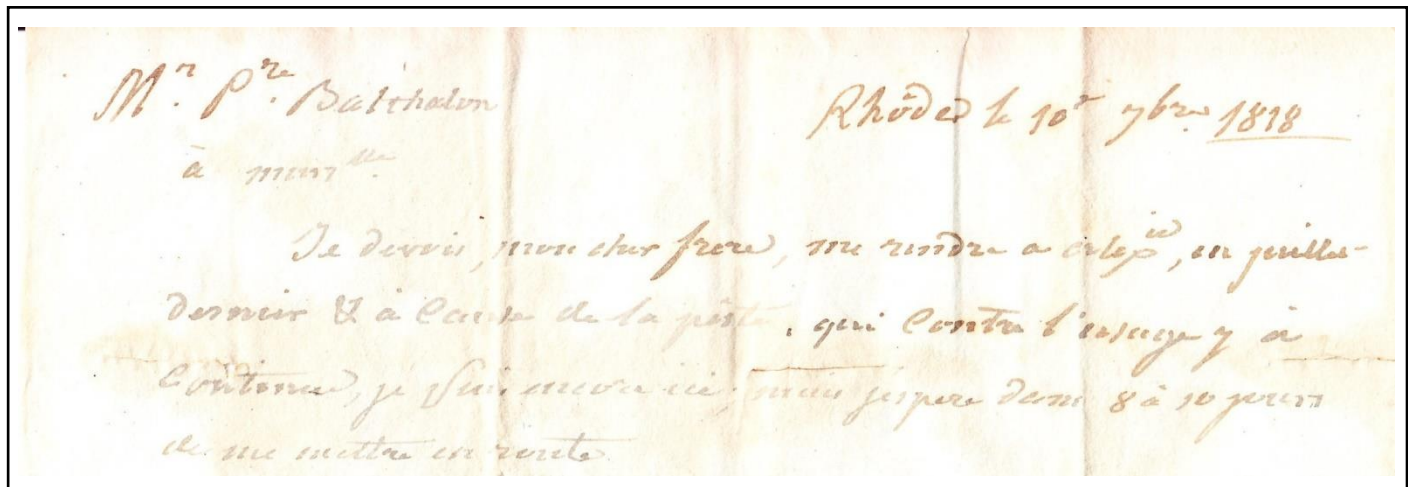 Mr. Pre. Balthalon
Rhodes le 10e 7bre. 1818
à Mars lle.
Je devois, mon cher frere, me rendre a Alexie, en juillet
dernier & à Cause de la peste, qui Contre l'usage y à
Continué, je suis encore ici; mais j'espere dans 8 à 10 jours
de me mettre en route